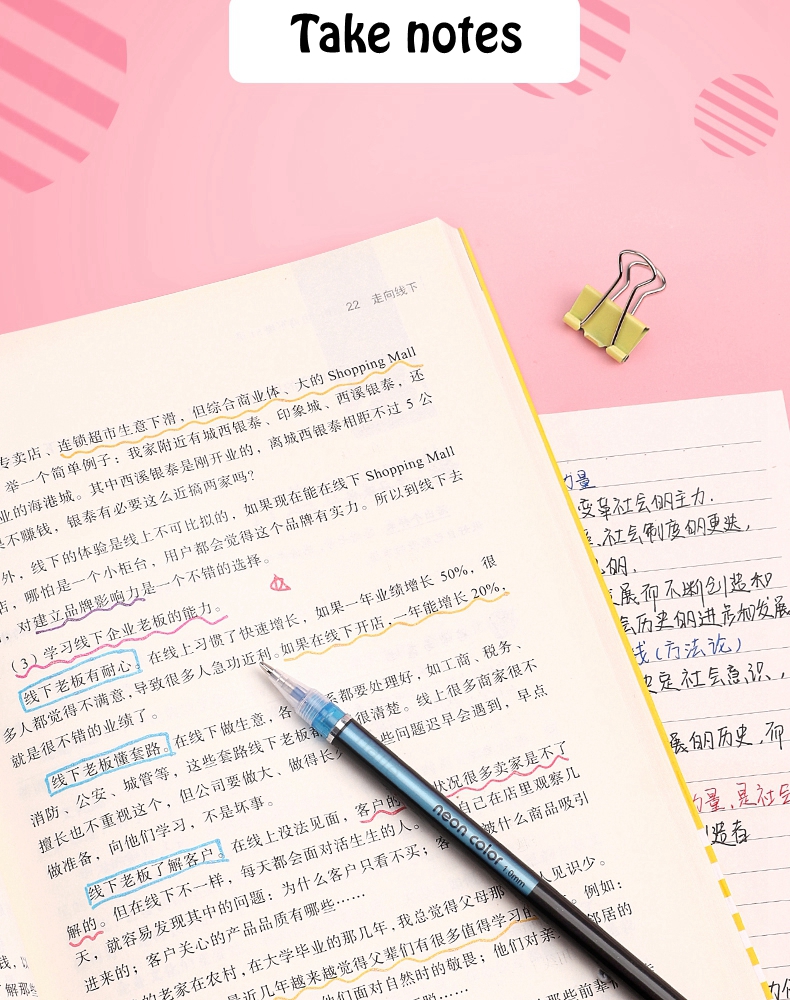 Take notes
22 走向线下
专卖店、连锁超市生意下滑，但综合商业体、大的 Shopping Mall
举一个简单例子：我家附近有城西银泰、印象城、西溪银泰，还
业的海港城。其中西溪银泰是刚开业的，离城西银泰相距不过 5 公
不赚钱，银泰有必要这么近搞两家吗？
外，线下的体验是线上不可比拟的，如果现在能在线下 Shopping Mall
店，哪怕是一个小柜台，用户都会觉得这个品牌有实力。所以到线下去
，对建立品牌影响力是一个不错的选择。
（3）学习线下企业老板的能力。
线下老板有耐心。在线上习惯了快速增长，如果一年业绩增长 50%，很
多人都觉得不满意，导致很多人急功近利。如果在线下开店，一年能增长 20%，
就是很不错的业绩了。
线下老板懂套路。在线下做生意，各 系都要处理好，如工商、税务、
消防、公安、城管等，这些套路线下老板都 很清楚。线上很多商家很不
擅长也不重视这个，但公司要做大、做得长 些问题迟早会遇到，早点
做准备，向他们学习，不是坏事。
线下老板了解客户。在线上没法见面，客户的 状况很多卖家是不了
解的。但在线下不一样，每天都会面对活生生的人。 自己在店里观察几
天，就容易发现其中的问题：为什么客户只看不买；客 被什么商品吸引
进来的；客户关心的产品品质有哪些……
的老家在农村，在大学毕业的那几年，我总觉得父母那 人见识少。
是近几年越来越觉得父辈们有很多值得学习的 。例如：
他们面对自然时的敬畏；他们对亲 邻居的
那些前辈
量
变革社会的主力.
社会制度的更迭，
的.
展而不断创造和
历史的进步和发展
线(方法论)
决定社会意识，
展的历史，而
力量，是社会
造者
neon color 1.0mm